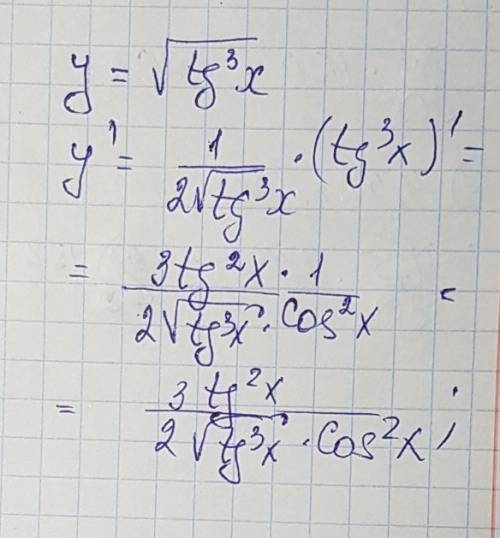 y = √(tg³x)
y' = 1/(2√(tg³x)) · (tg³x)' =
= (3tg²x · 1)/(2√(tg³x) · cos²x) =
= (3tg²x)/(2√(tg³x) · cos²x) ;